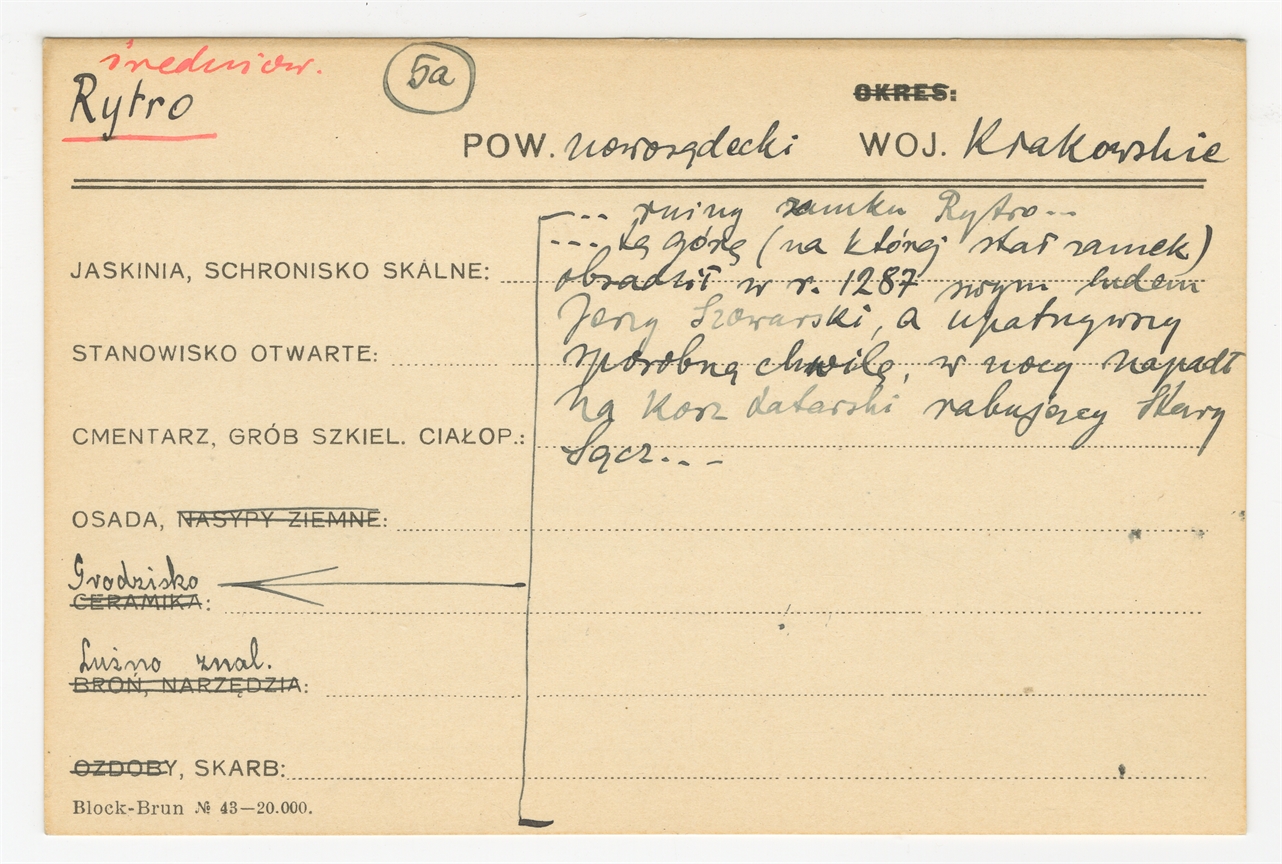 średniow.
Rytro
5a
OKRES:
POW. nowosądecki WOJ. Krakowskie
... ruiny zamku Rytro...
... tę górę (na której stał zamek)
JASKINIA, SCHRONISKO SKALNE: obsadził w r. 1287 swym ludem
Jerzy Szowarski, a upatrzywszy
STANOWISKO OTWARTE: sposobną chwilę, w nocy napadł
na kosz tatarski rabujący Stary
CMENTARZ, GRÓB SZKIEL. CIAŁOP.: Sącz...
OSADA, NASYPY ZIEMNE:
Grodzisko
CERAMIKA:
Luźno znal.
BROŃ, NARZĘDZIA:
OZDOBY, SKARB:
Block-Brun № 43—20.000.